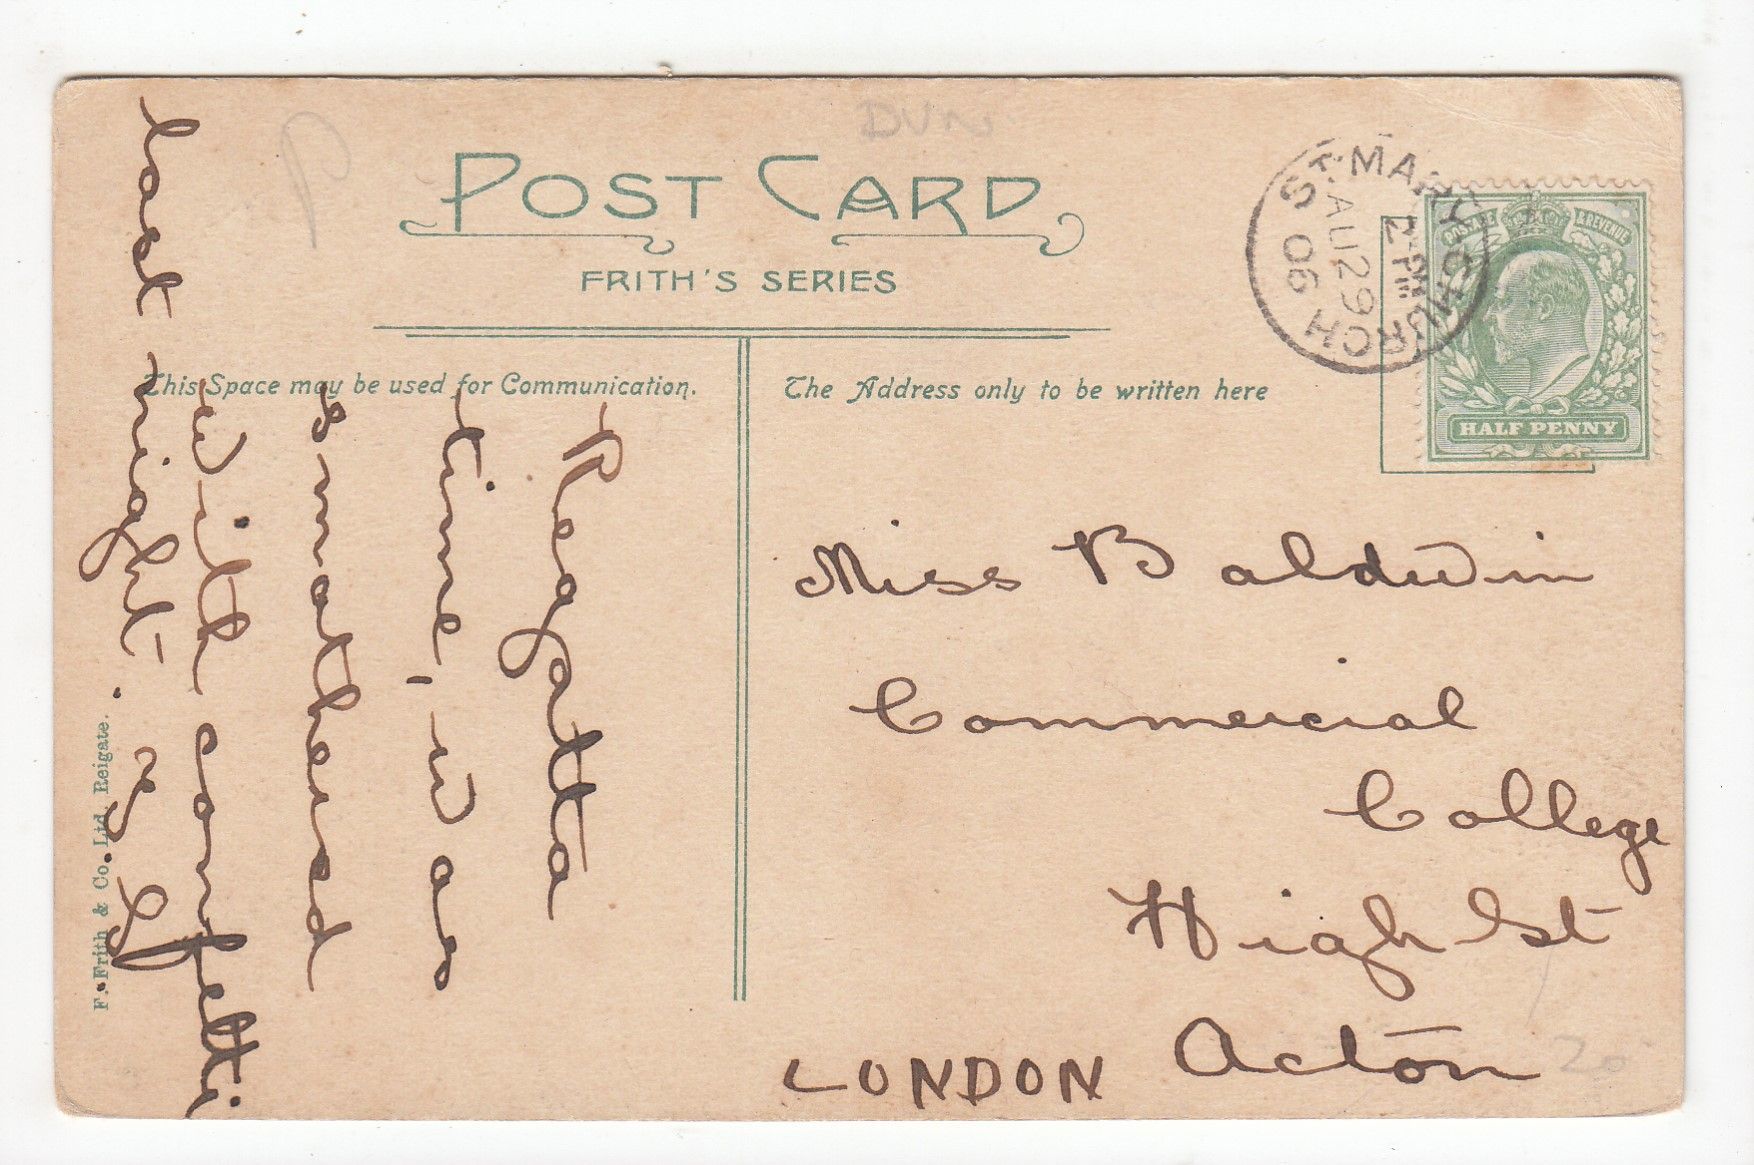 DUN
POST CARD
FRITH'S SERIES
This Space may be used for Communication.
The Address only to be written here
ST. MARY CHURCH
2 PM
AU 29
06
POSTAGE & REVENUE
HALF PENNY
Regatta
time, was
smothered
with confetti
last night.
Miss Baldwin
Commercial
College
High St
Acton
LONDON
F. Frith & Co. Ltd. Reigate.
20